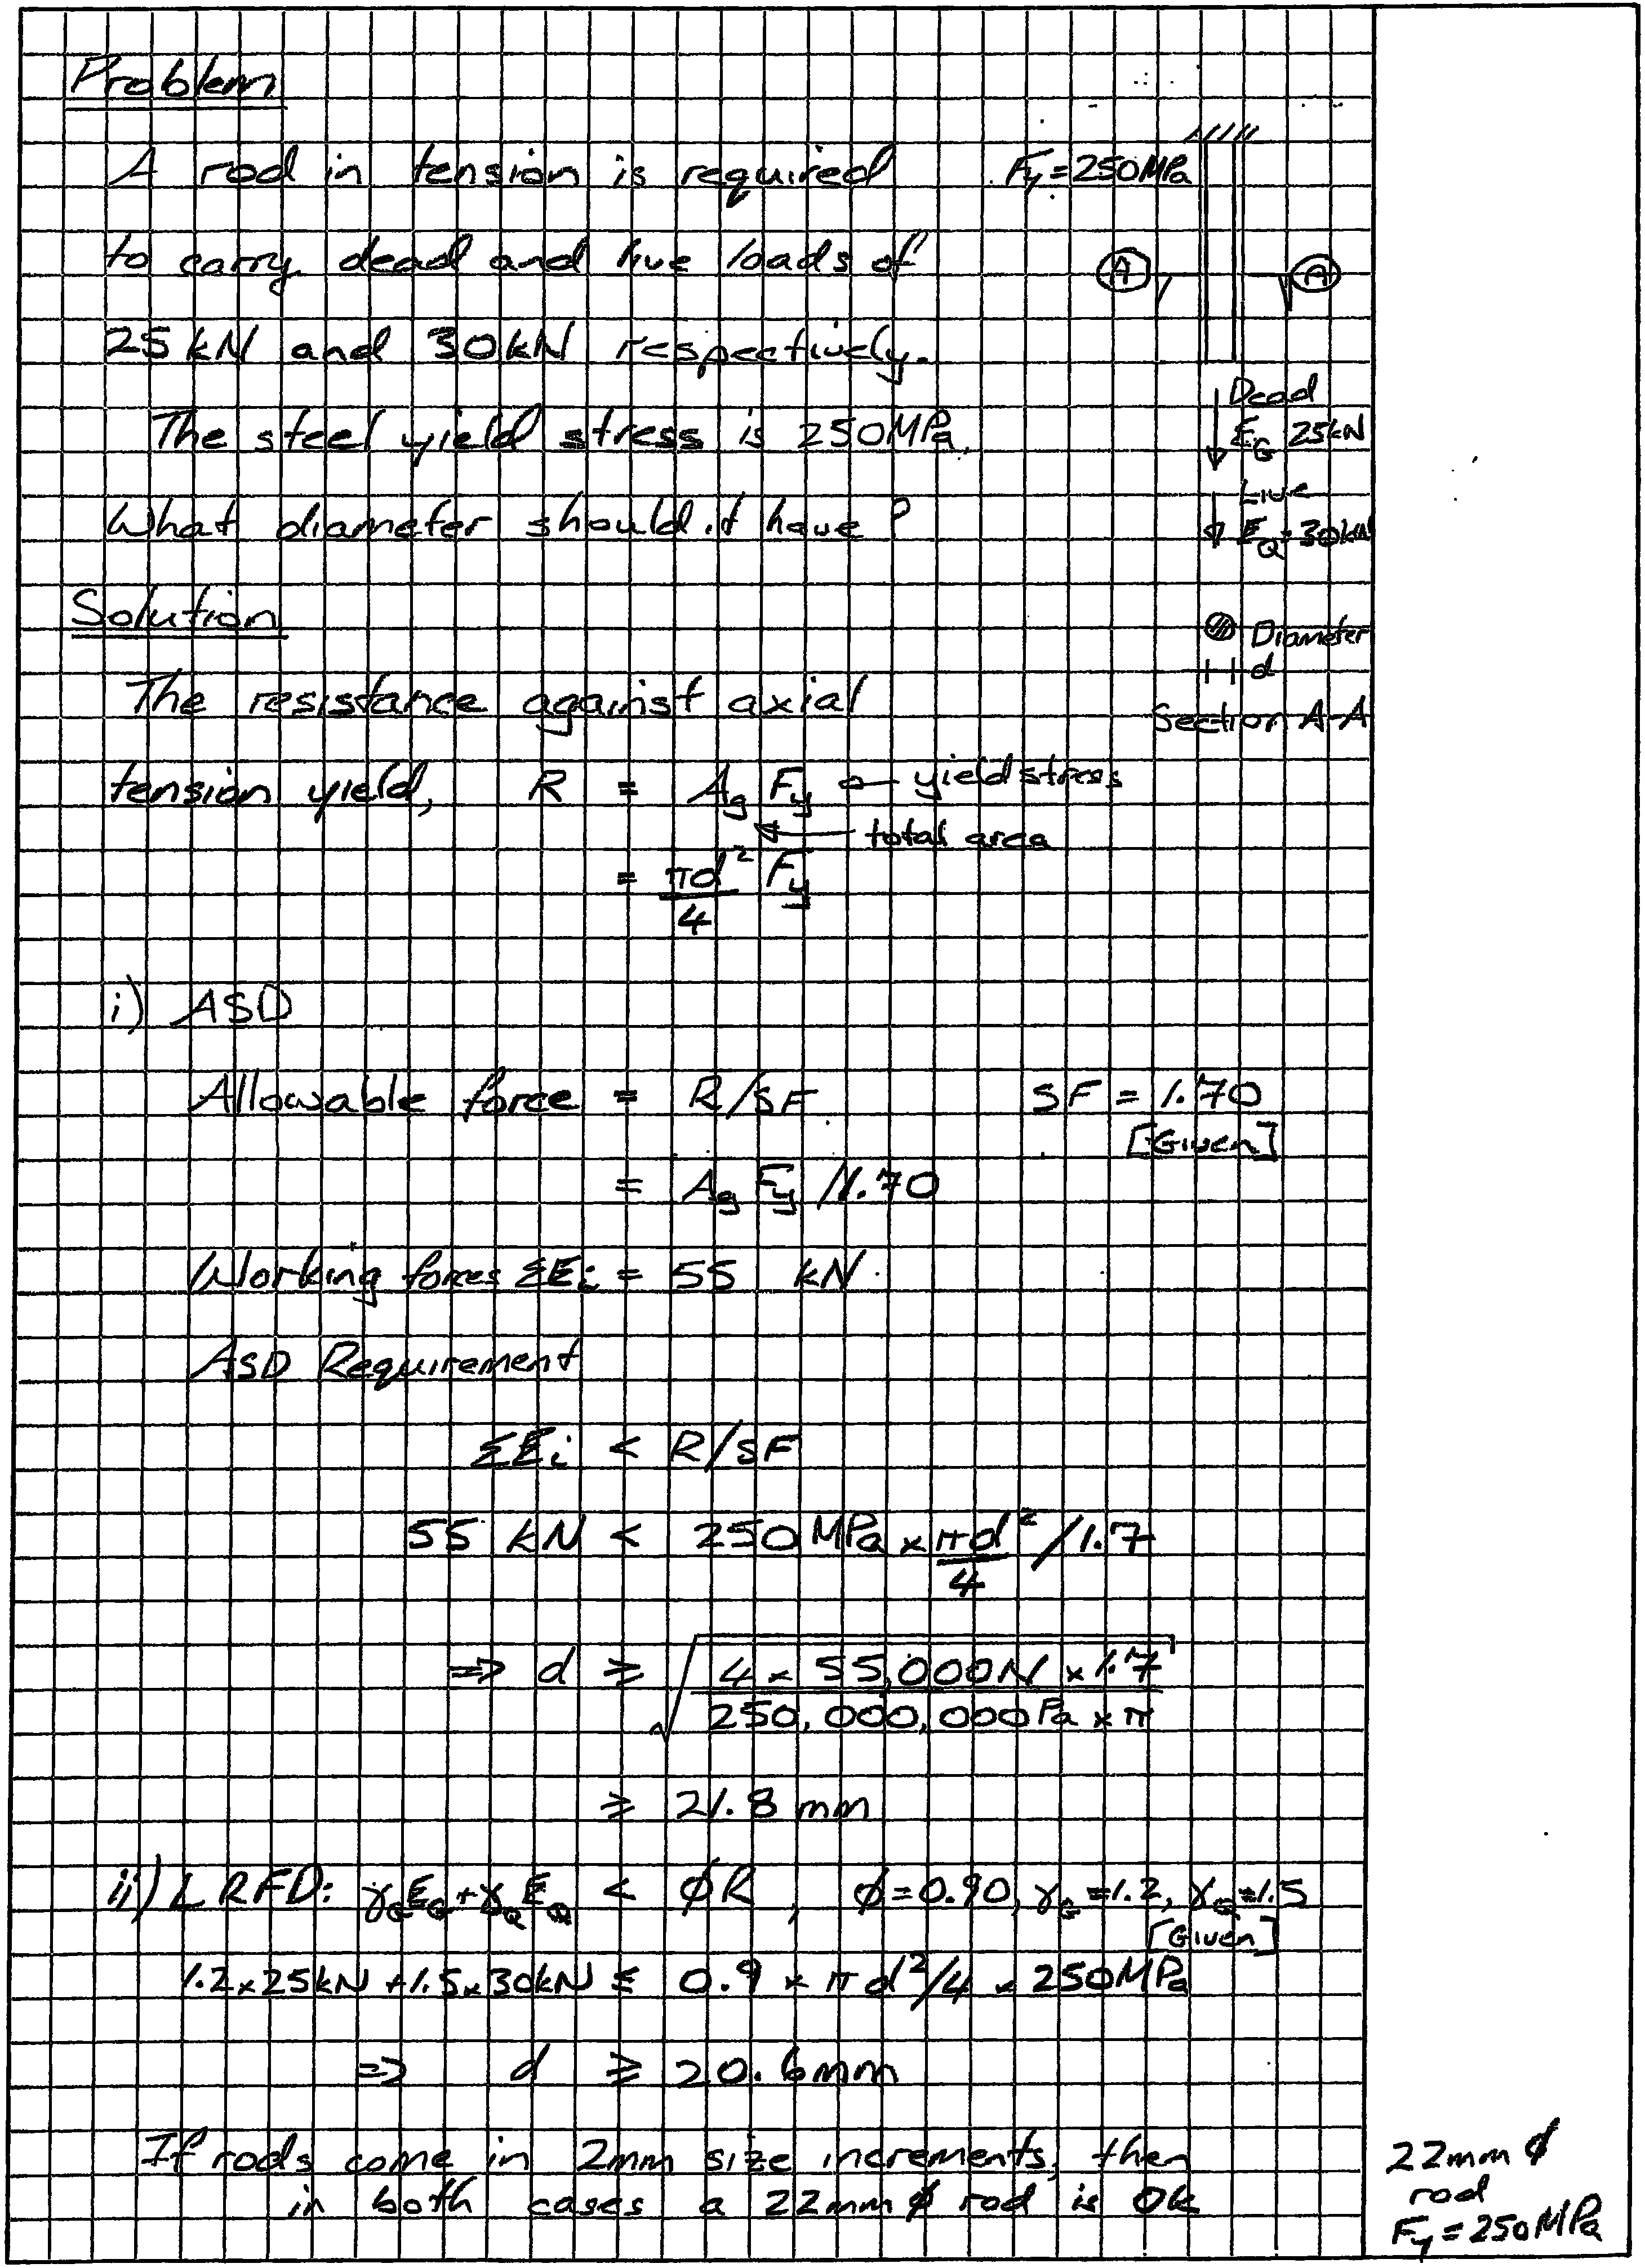 Problem
A rod in tension is required
to carry dead and live loads of
25 kN and 30 kN respectively.
The steel yield stress is 250MPa.
What diameter should it have?
Fy = 250MPa
A A
Dead
E_G 25kN
Live
E_Q = 30kN
Diameter
d
Section A-A
Solution
The resistance against axial
tension yield, R = A_g F_y ← yield stress
← total area
= πd²/4 F_y
i) ASD
Allowable force = R/SF SF = 1.70
[Given]
= A_g F_y /1.70
Working forces ΣE_i = 55 kN
ASD Requirement
ΣE_i < R/SF
55 kN < 250 MPa × πd²/4 /1.7
⇒ d ≥ √(4 × 55,000N × 1.7 / 250,000,000Pa × π)
≥ 21.8 mm
ii) LRFD: γ_G E_G + γ_Q E_Q < φR, φ = 0.90, γ_G = 1.2, γ_Q = 1.5
[Given]
1.2 × 25kN + 1.5 × 30kN ≤ 0.9 × πd²/4 × 250MPa
⇒ d ≥ 20.6mm
If rods come in 2mm size increments, then
in both cases a 22mm φ rod is Ok
22mm φ
rod
Fy = 250MPa